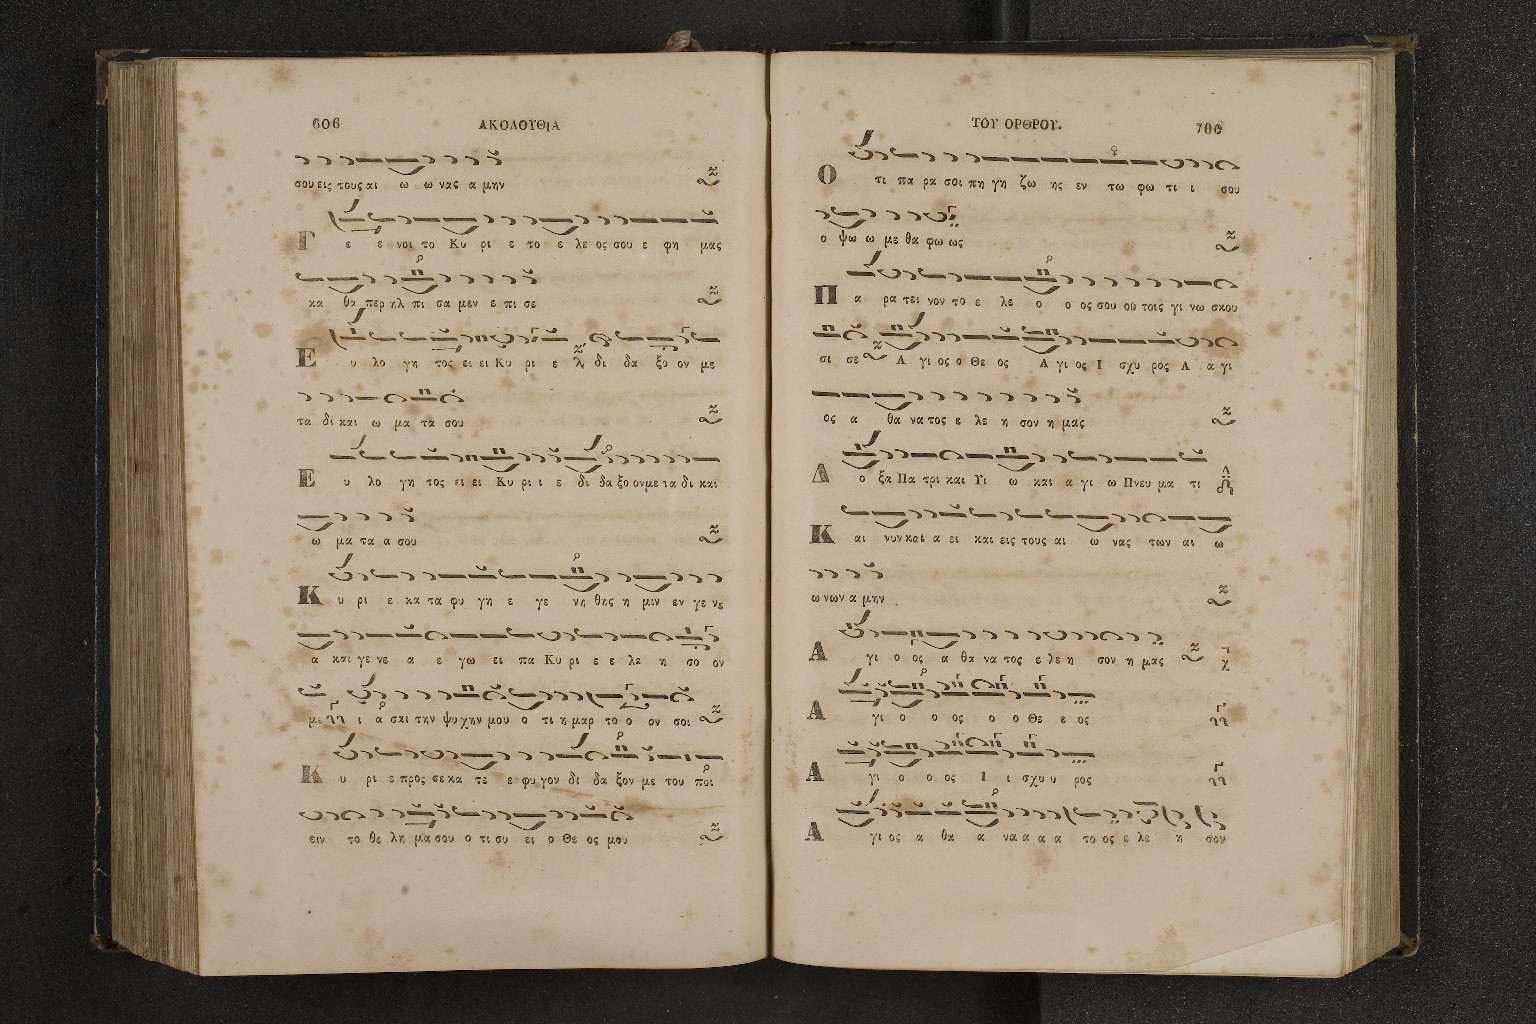 606
ΑΚΟΛΟΥΘΙΑ
σου εις τους αι ω ω νας α μην
Γ ε ε νοι το Κυ ρι ε το ε λε ος σου ε φη μας
κα θα περ ηλ πι σα μεν ε πι σε
Ε υ λο γη τος ει ει Κυ ρι ε δι δα ξο ον με
τα δι και ω μα τα σου
Ε υ λο γη τος ει ει Κυ ρι ι ε δι δα ξο ον με τα δι και
ω μα τα α σου
Κ υ ρι ε κα τα φυ γη ε γε νη θης η μιν εν γε νε
α και γε νε α ε γω ει πα Κυ ρι ε ε λε η σο ον
με ι α σαι την ψυ χην μου ο τι η μαρ το ο ον σοι
Κ υ ρι ε προς σε κα τε ε φυ γον δι δα ξον με του ποι
ειν το θε λη μα σου ο τι συ ει ο Θε ος μου
ΤΟΥ ΟΡΘΡΟΥ.
700
Ο τι πα ρα σοι πη γη ζω ης εν τω φω τι ι σου
ο ψω ω με θα φω ως
Π α ρα τει νον το ε λε ο ο ος σου ου τοις γι νω σκου
σι σε Α γι ος ο Θε ος Α γι ος Ι σχυ ρος Α α γι
ος α θα να τος ε λε η σον η μας
Δ ο ξα Πα τρι και Υι ω και α γι ω Πνευ μα τι
Κ αι νυν και α ει και εις τους αι ω νας των αι ω
ω νων α μην
Α γι ο ος α θα να τος ε λε η σον η μας
Α γι ο ο ος ο ο Θε ε ος
Α γι ο ο ος Ι ι σχυ υ ρος
Α γι ος α θα α να α α α το ος ε λε η σον